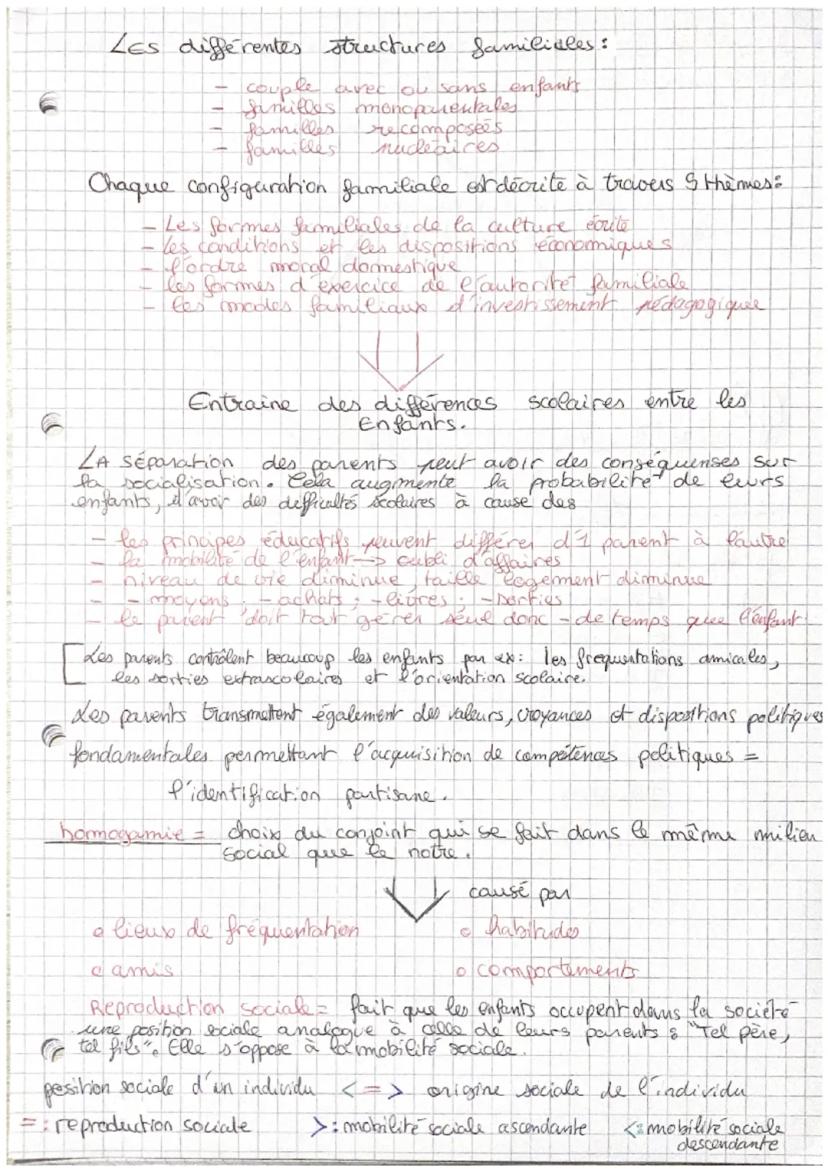 Les différentes structures familiales :
- couple avec ou sans enfants
- familles monoparentales
- familles recomposées
- familles nucléaires
Chaque configuration familiale est décrite à travers 5 thèmes :
- Les formes familiales de la culture écrite
- les conditions et les dispositions économiques
- l'ordre moral domestique
- les formes d'exercice de l'autorité familiale
- les modes familiaux d'investissement pédagogique
Entraine des différences scolaires entre les
Enfants.
LA séparation des parents peut avoir des conséquenses sur
la socialisation. Cela augmente la probabilité de leurs
enfants, d'avoir des difficultés scolaires à cause des
- les principes éducatifs peuvent différer d'1 parent à l'autre
- la mobilité de l'enfant → oubli d'affaires
- niveau de vie diminue, taille logement diminue
- - moyens : - achats ; - livres ; - sorties
- le parent doit tout gérer seul donc - de temps que l'enfant
[Les parents contrôlent beaucoup les enfants par ex : les frequentations amicales,
les sorties extrascolaires et l'orientation scolaire.
Les parents transmettent également des valeurs, croyances et dispositions politiques
fondamentales permettant l'acquisition de compétences politiques =
l'identification partisane.
homogamie = choix du conjoint qui se fait dans le même milieu
social que le notre.
causé par
o lieux de fréquentation o habitudes
o amis o comportements
Reproduction sociale = fait que les enfants occupent dans la société
une position sociale analogue à celle de leurs parents : "Tel père,
tel fils". Elle s'oppose à la mobilité sociale.
position sociale d'un individu < = > origine sociale de l'individu
= : reproduction sociale > : mobilité sociale ascendante < : mobilité sociale
descendante